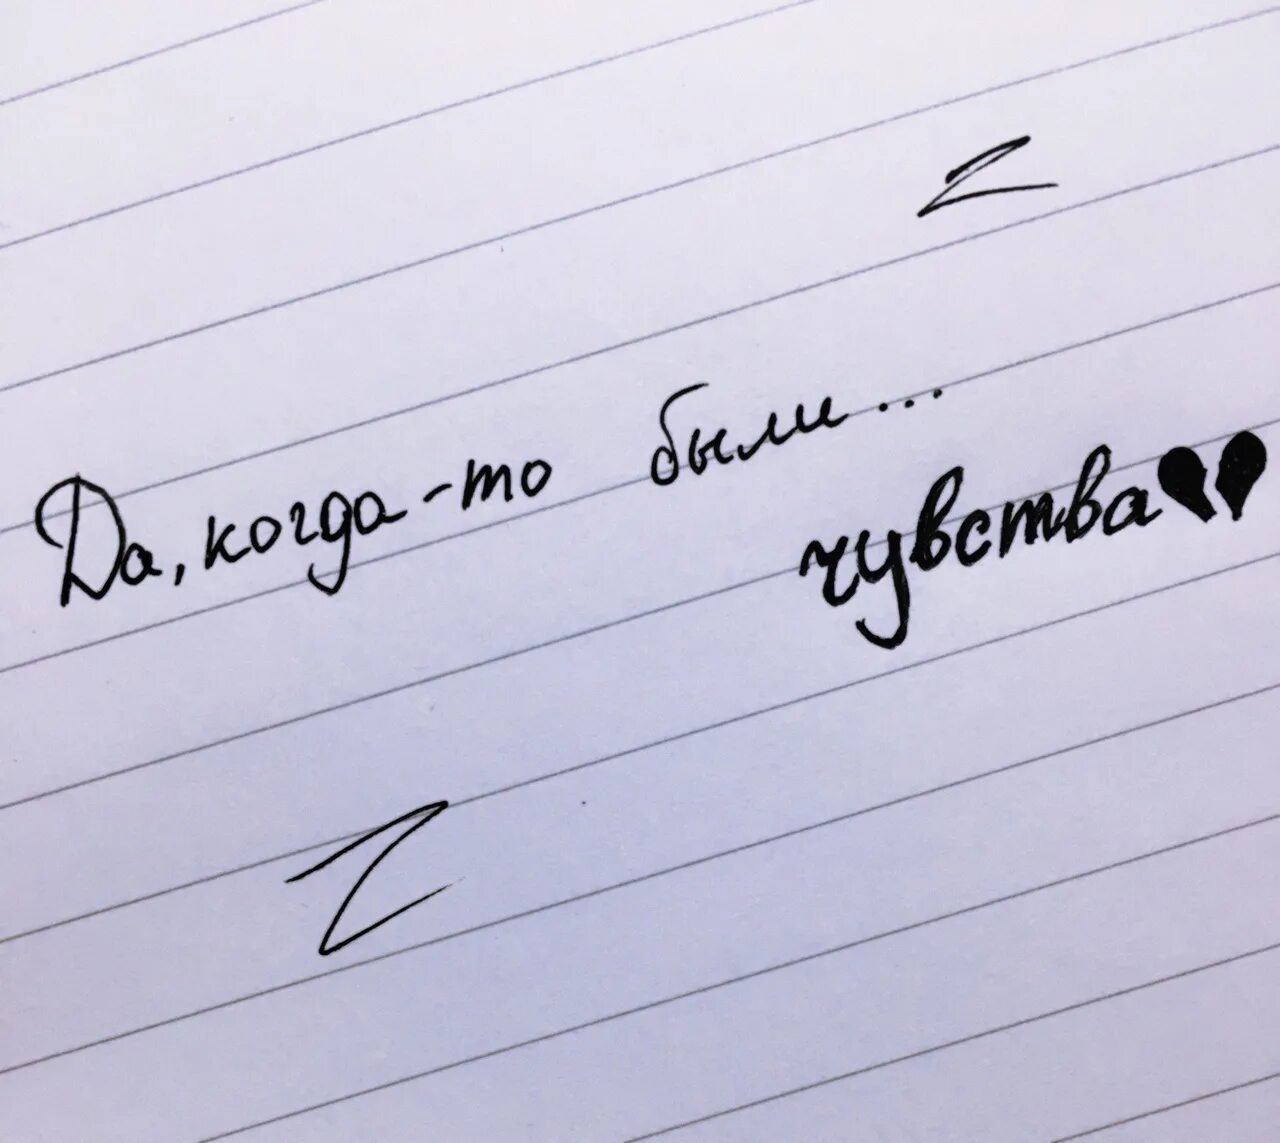 Да, когда-то были...
чувства